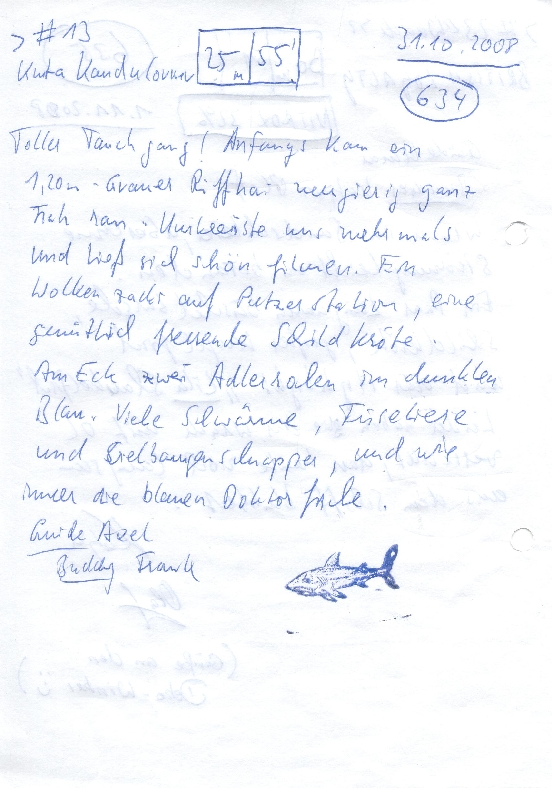 > #13
25 m 55'
31.10.2008
Kuta Kandu
634
Toller Tauchgang! Anfangs kam ein
1,20m - Grauer Riffhai neugierig ganz
nah ran. Umkreiste uns mehrmals
und ließ sich schön filmen. Ein
Wolken auf Putzerstation, eine
gemütlich fressende Schildkröte.
Am Eck zwei Adlerrochen im dunklen
Blau. Viele Schwärme, Füseliere
und Schnapper, und wie
immer die blauen Doktorfische.
Guide Axel
Buddy Frank